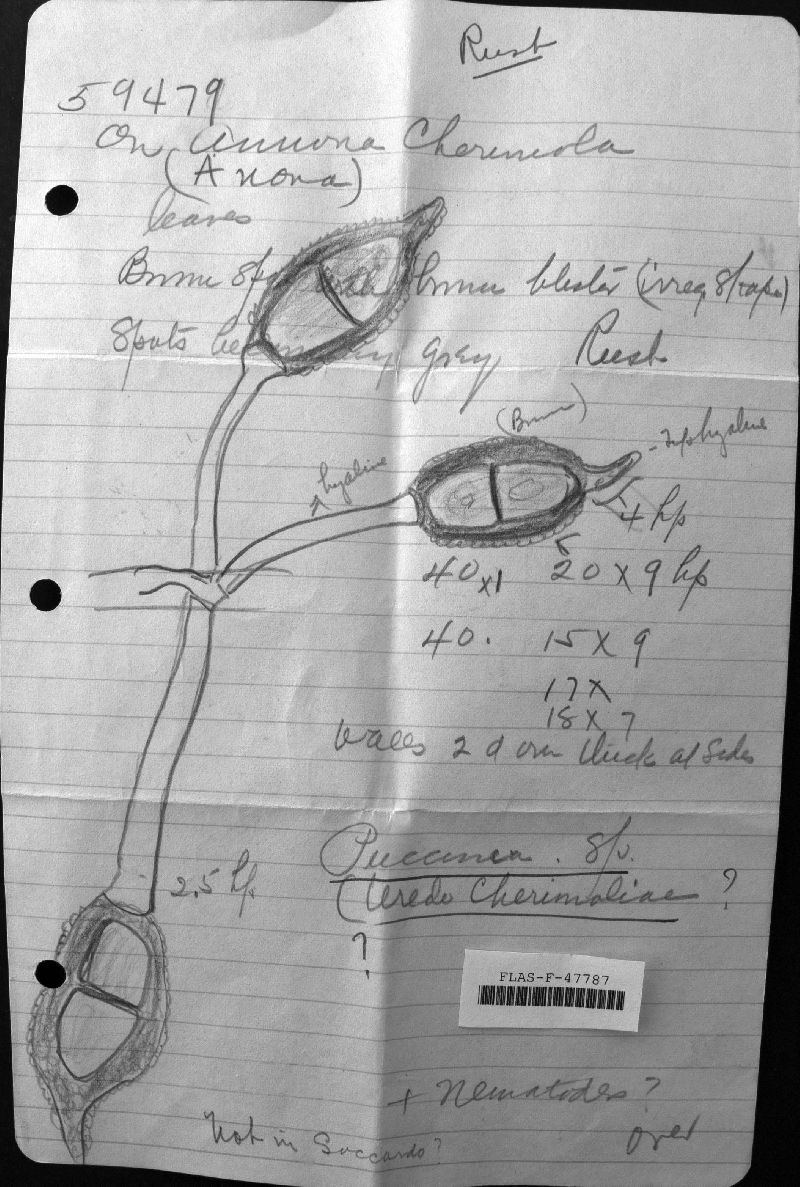 Rust
59479
On Annona Cherimola
(Anona)
leaves
Brown Spots with brown blister (irreg. shape)
Spots becoming grey Rust
(Brown)
hyaline
- Tip hyaline
4 hp
40 x1 20 x 9 hp
40. 15 x 9
17 x
18 x 7
walls 2 d over thick at sides
Puccinea. Sp.
2.5 hp
(Uredo Cherimoliae ?
?
FLAS-F-47787
+ Nematodes?
over
Not in Saccardo?